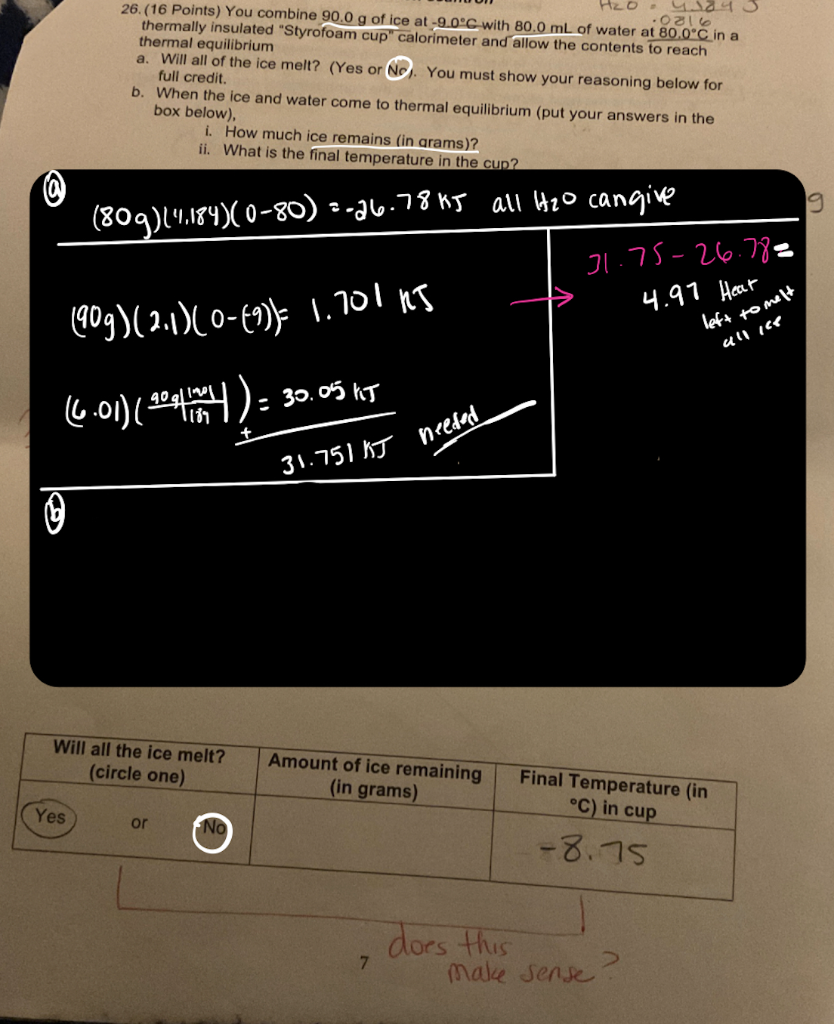 H2O = 4.184 J
.0816
26. (16 Points) You combine 90.0 g of ice at -9.0°C with 80.0 mL of water at 80.0°C in a
thermally insulated "Styrofoam cup" calorimeter and allow the contents to reach
thermal equilibrium
a. Will all of the ice melt? (Yes or No). You must show your reasoning below for
full credit.
b. When the ice and water come to thermal equilibrium (put your answers in the
box below),
i. How much ice remains (in grams)?
ii. What is the final temperature in the cup?
a
(80g)(4.184)(0-80) = -26.78 KJ all H2O can give
(90g)(2.1)(0-(-9)) = 1.701 KJ
31.75 - 26.78 =
4.97 Heat
left to melt
all ice
(6.01)(90g | 1mol / 18g) = 30.05 KJ
+
31.751 KJ needed
b
9
Will all the ice melt?
(circle one)
Amount of ice remaining
(in grams)
Final Temperature (in
°C) in cup
Yes or No
-8.75
does this
make sense?
7